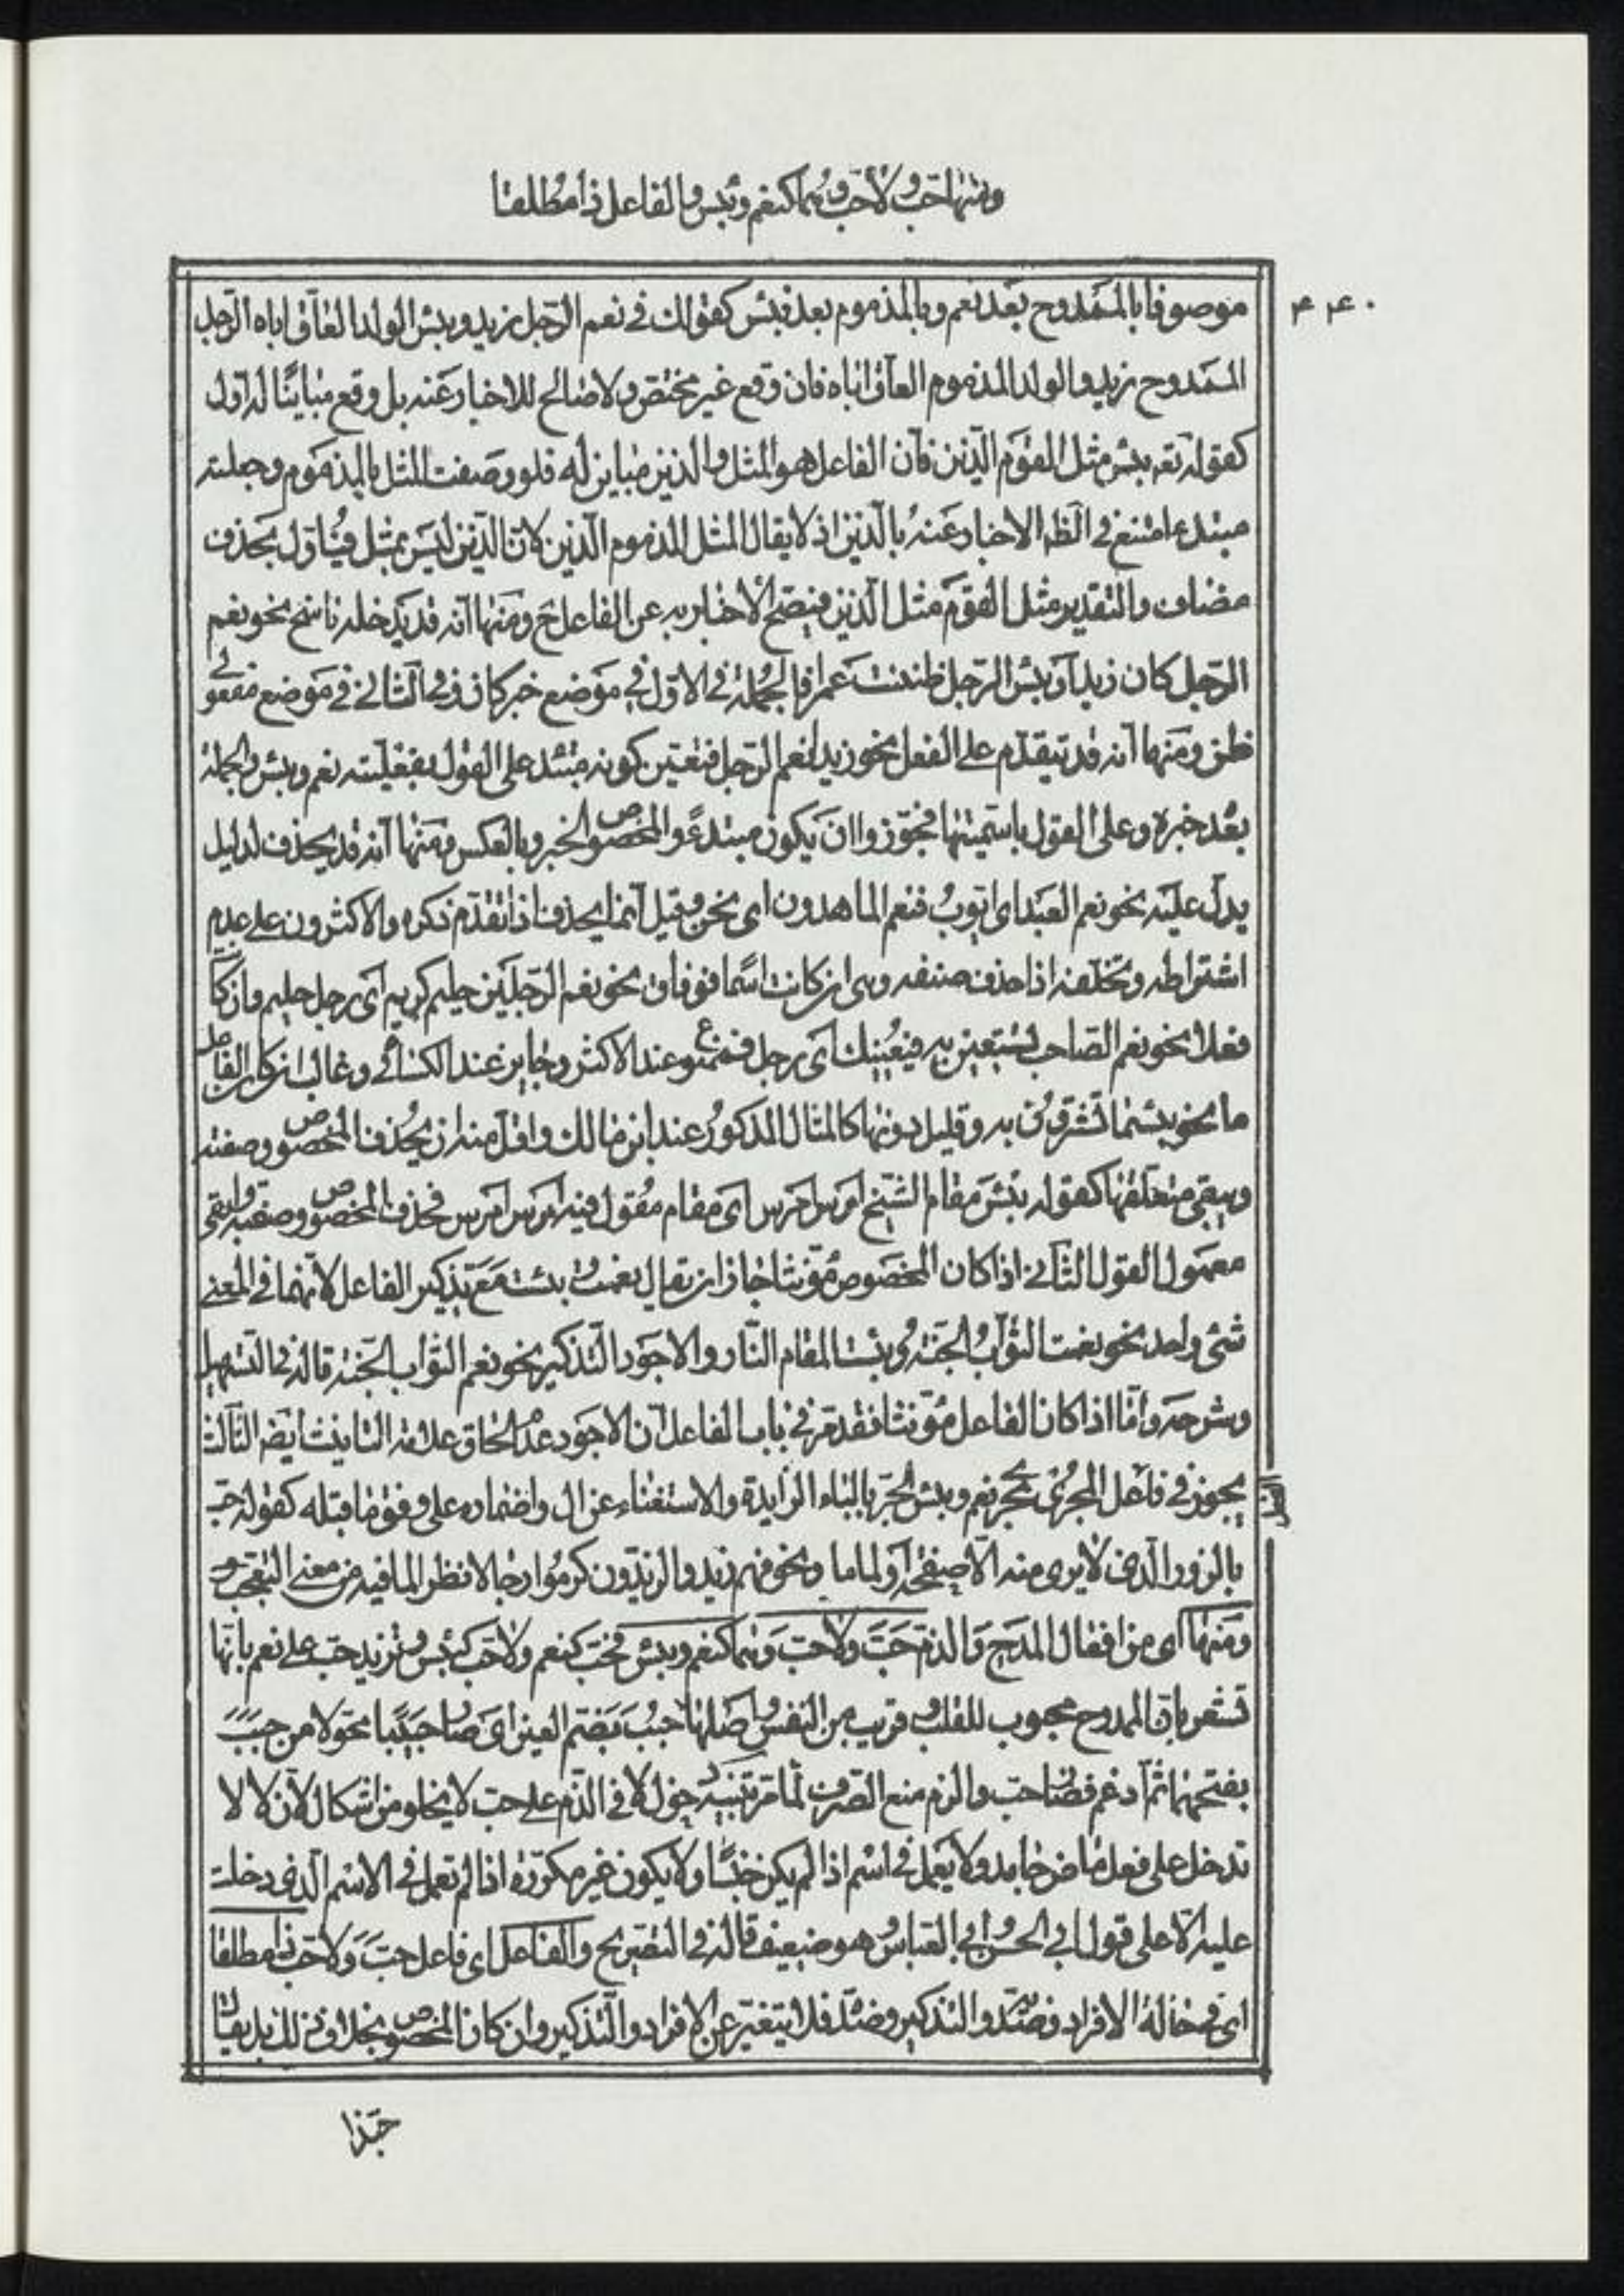 ومنها حب ولاحب وهما كنعم وبئس والفاعل ذا مطلقا
۴۴۰
موصوفا بالممدوح بعد نعم وبالمذموم بعد بئس كقولك في نعم الرجل زيد وبئس الولد العاق اباه الرجل
الممدوح زيد والولد المذموم العاق اباه فان وقع غير مختص ولا صالح للاخبار عنه بل وقع مباينا له اول
كقوله تعه بئس مثل القوم الذين فان الفاعل هو المثل والذين مباين له فلو وصفت المثل بالمذموم وجعلته
مبتدءا امتنع في الظ الاخبار عنه بالذين اذ لا يقال المثل المذموم الذين لان الذين ليس بمثل فياول بحذف
مضاف والتقدير مثل القوم مثل الذين فيصح الاخبار به عن الفاعل ح ومنها انه قد يدخله ناسخ نحو نعم
الرجل كان زيدا وبئس الرجل ظننت عمرا فالجملة في الاول في موضع خبر كان وفي الثاني في موضع مفعولي
ظن ومنها انه قد يتقدم على الفعل نحو زيد نعم الرجل فتعين كونه مبتدء على القول بفعلية نعم وبئس والجملة
بعد خبره وعلى القول باسميتها فجوزوا ان يكون مبتدء والمخصوص الخبر وبالعكس ومنها انه قد يحذف لدليل
يدل عليه نحو نعم العبد اى ايوب فنعم الماهدون اى نحن وقيل انما يحذف اذا تقدم ذكره والاكثرون على عدم
اشتراطه وتخلفه اذا حذف صفته وهى ان كانت اسما فوفاق نحو نعم الرجلين حليم كريم اى رجل حليم وان كا
فعلا نحو نعم الصاحب تستعين به فيعينك اى رجل فممنوع عند الاكثر وجايز عند الكسائى وغالب ان كان الفاعل
ما نحو بئسما تشرفون به وقليل دونها كالمثال المذكور عند ابن مالك واقل منه ان يحذف المخصوص وصفته
ويبقى متعلقها كقوله بئس مقام الشيخ امرس امرس اى مقام مقول فيه امرس امرس فحذف المخصوص وصفته وابقى
معمول القول الثاني اذا كان المخصوص مؤنثا جاز ان يقال نعمت وبئست مع تذكير الفاعل لانهما في المعنى
شئ واحد نحو نعمت الثواب الجنة وبئست المقام النار والاجود التذكير نحو نعم الثواب الجنة قاله في التسهيل
وشرحه واما اذا كان الفاعل مؤنثا فقد مر في باب الفاعل ان الاجود عدم الحاق علامة التانيث ايضا الثالث
يجوز في فاعل المجرى مجرى نعم وبئس الجر بالباء الزايدة والاستغناء عن ال واضماره على وفق ما قبله كقوله حب
بالزور الذى لا يرى منه الا صفحة او لماما ونحو فهم زيد والزيدون كرموا رجالا نظرا لما فيه من معنى التعجب
ومنها اى من افعال المدح والذم حب ولاحب وهما كنعم وبئس فحب كنعم ولاحب كبئس وتزيد حب على نعم بانها
تشعر بان الممدوح محبوب للقلب وقريب من النفس واصلها حبب بضم العين اى صار حبيبا محولا من حبب
بفتحها ثم ادغم فصار حب والزم منع التصرف لما مر تنبيه دخول لا في الذم على حب لا يخلو من اشكال لان لا لا
تدخل على فعل ماض جامد ولا يعمل في اسم اذا لم يكن جنسا ولا يكون غير مكررة اذا لم تعمل في الاسم الذى دخلت
عليه الا على قول ابي الحسن وابي العباس وهو ضعيف قاله في التصريح والفاعل اى فاعل حب ولاحب ذا مطلقا
اى في حالة الافراد وضده والتذكير وضده فلا يتغير عن الافراد والتذكير وان كان المخصوص بخلاف ذلك بل يقال
حبذا